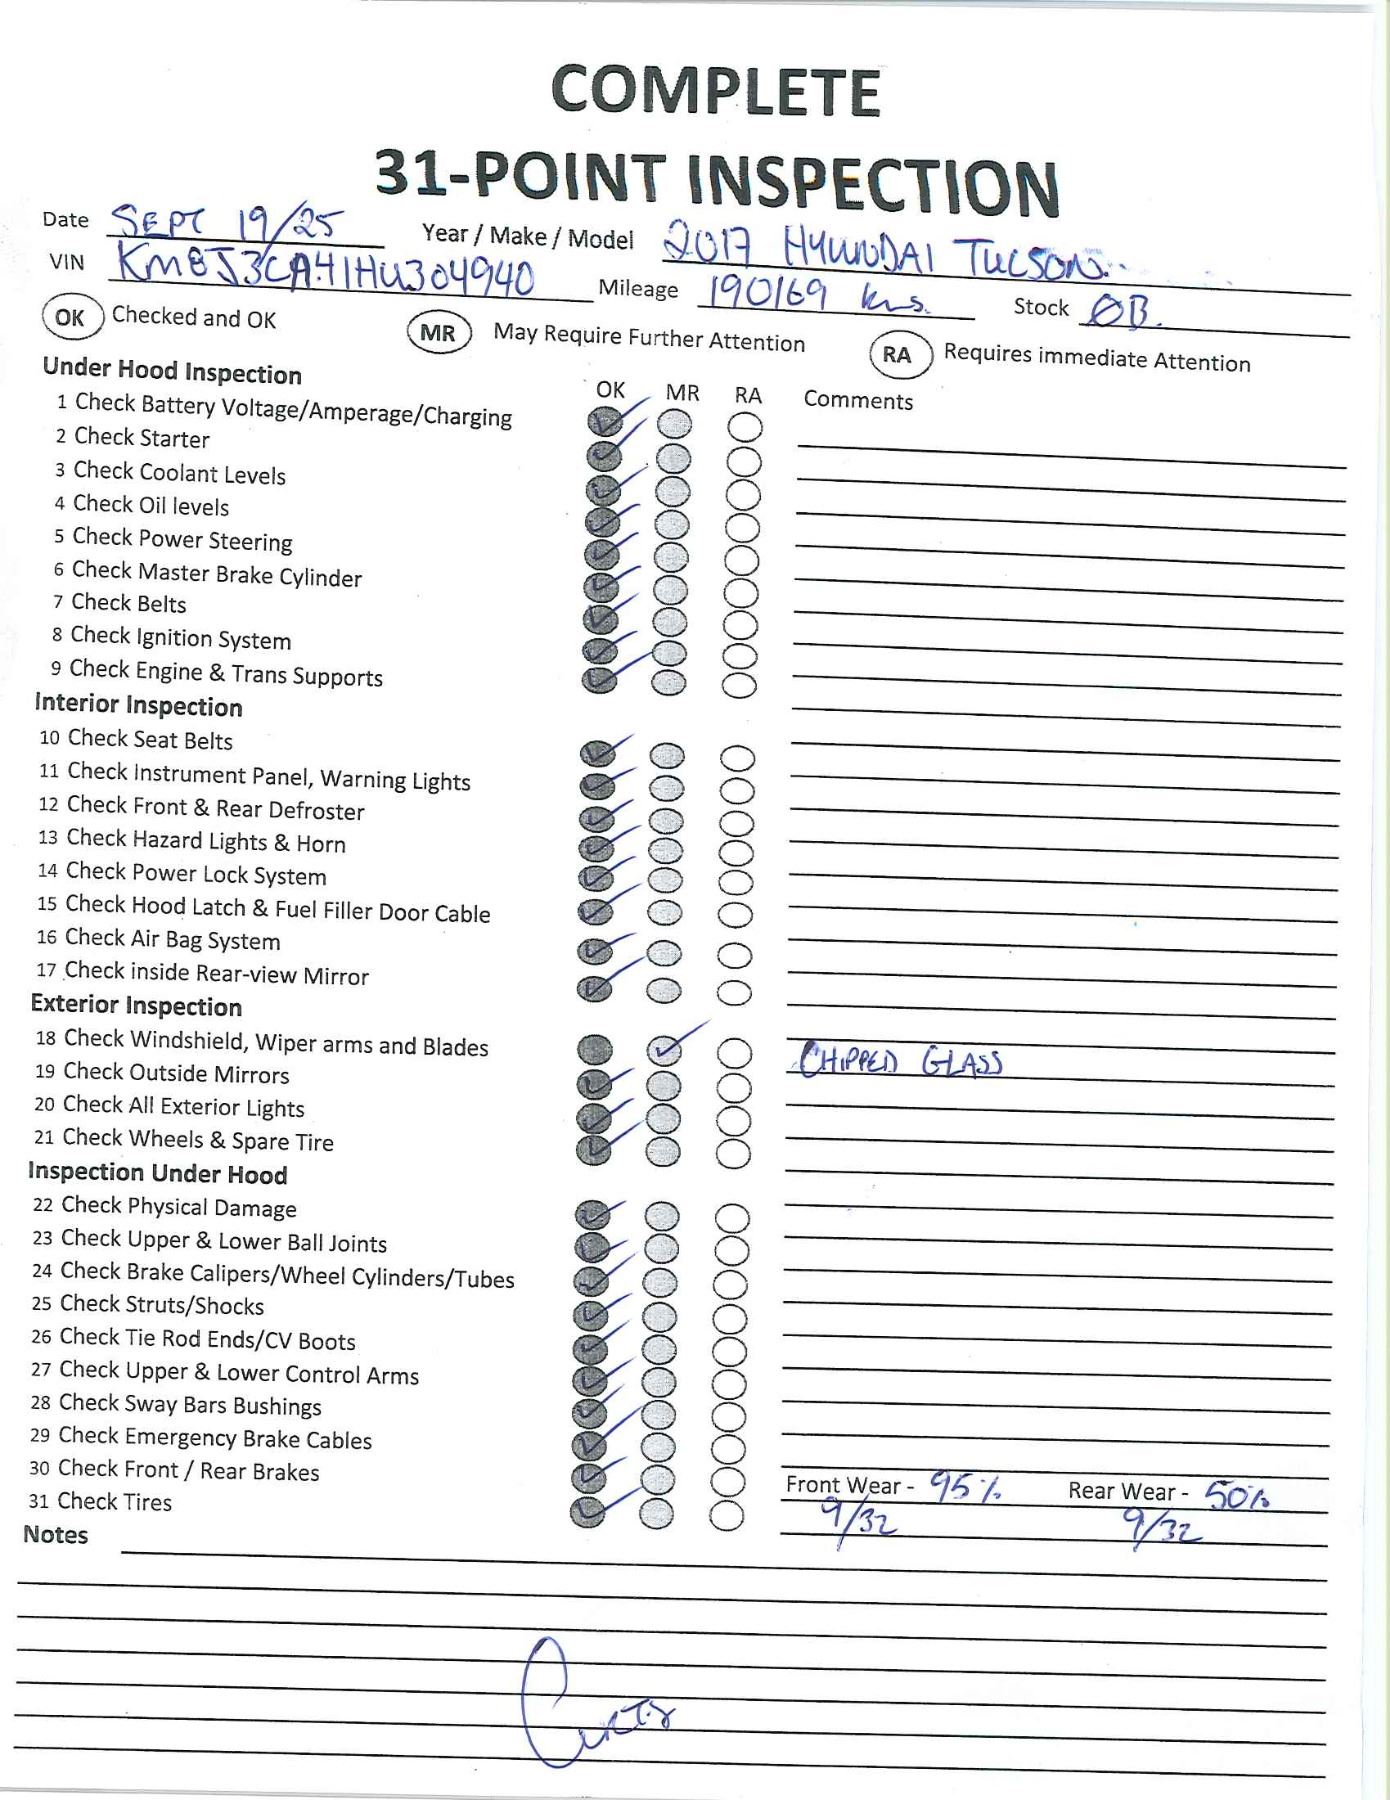 COMPLETE
31-POINT INSPECTION
Date SEPT 19/25 Year / Make / Model 2017 HYUNDAI TUCSON
VIN KM8J3CA41HU304940 Mileage 190169 kms. Stock OB.
OK Checked and OK MR May Require Further Attention RA Requires immediate Attention
Under Hood Inspection OK MR RA Comments
1 Check Battery Voltage/Amperage/Charging
2 Check Starter
3 Check Coolant Levels
4 Check Oil levels
5 Check Power Steering
6 Check Master Brake Cylinder
7 Check Belts
8 Check Ignition System
9 Check Engine & Trans Supports
Interior Inspection
10 Check Seat Belts
11 Check Instrument Panel, Warning Lights
12 Check Front & Rear Defroster
13 Check Hazard Lights & Horn
14 Check Power Lock System
15 Check Hood Latch & Fuel Filler Door Cable
16 Check Air Bag System
17 Check inside Rear-view Mirror
Exterior Inspection
18 Check Windshield, Wiper arms and Blades CHIPPED GLASS
19 Check Outside Mirrors
20 Check All Exterior Lights
21 Check Wheels & Spare Tire
Inspection Under Hood
22 Check Physical Damage
23 Check Upper & Lower Ball Joints
24 Check Brake Calipers/Wheel Cylinders/Tubes
25 Check Struts/Shocks
26 Check Tie Rod Ends/CV Boots
27 Check Upper & Lower Control Arms
28 Check Sway Bars Bushings
29 Check Emergency Brake Cables
30 Check Front / Rear Brakes Front Wear - 95% Rear Wear - 50%
31 Check Tires 9/32 9/32
Notes
Curtis